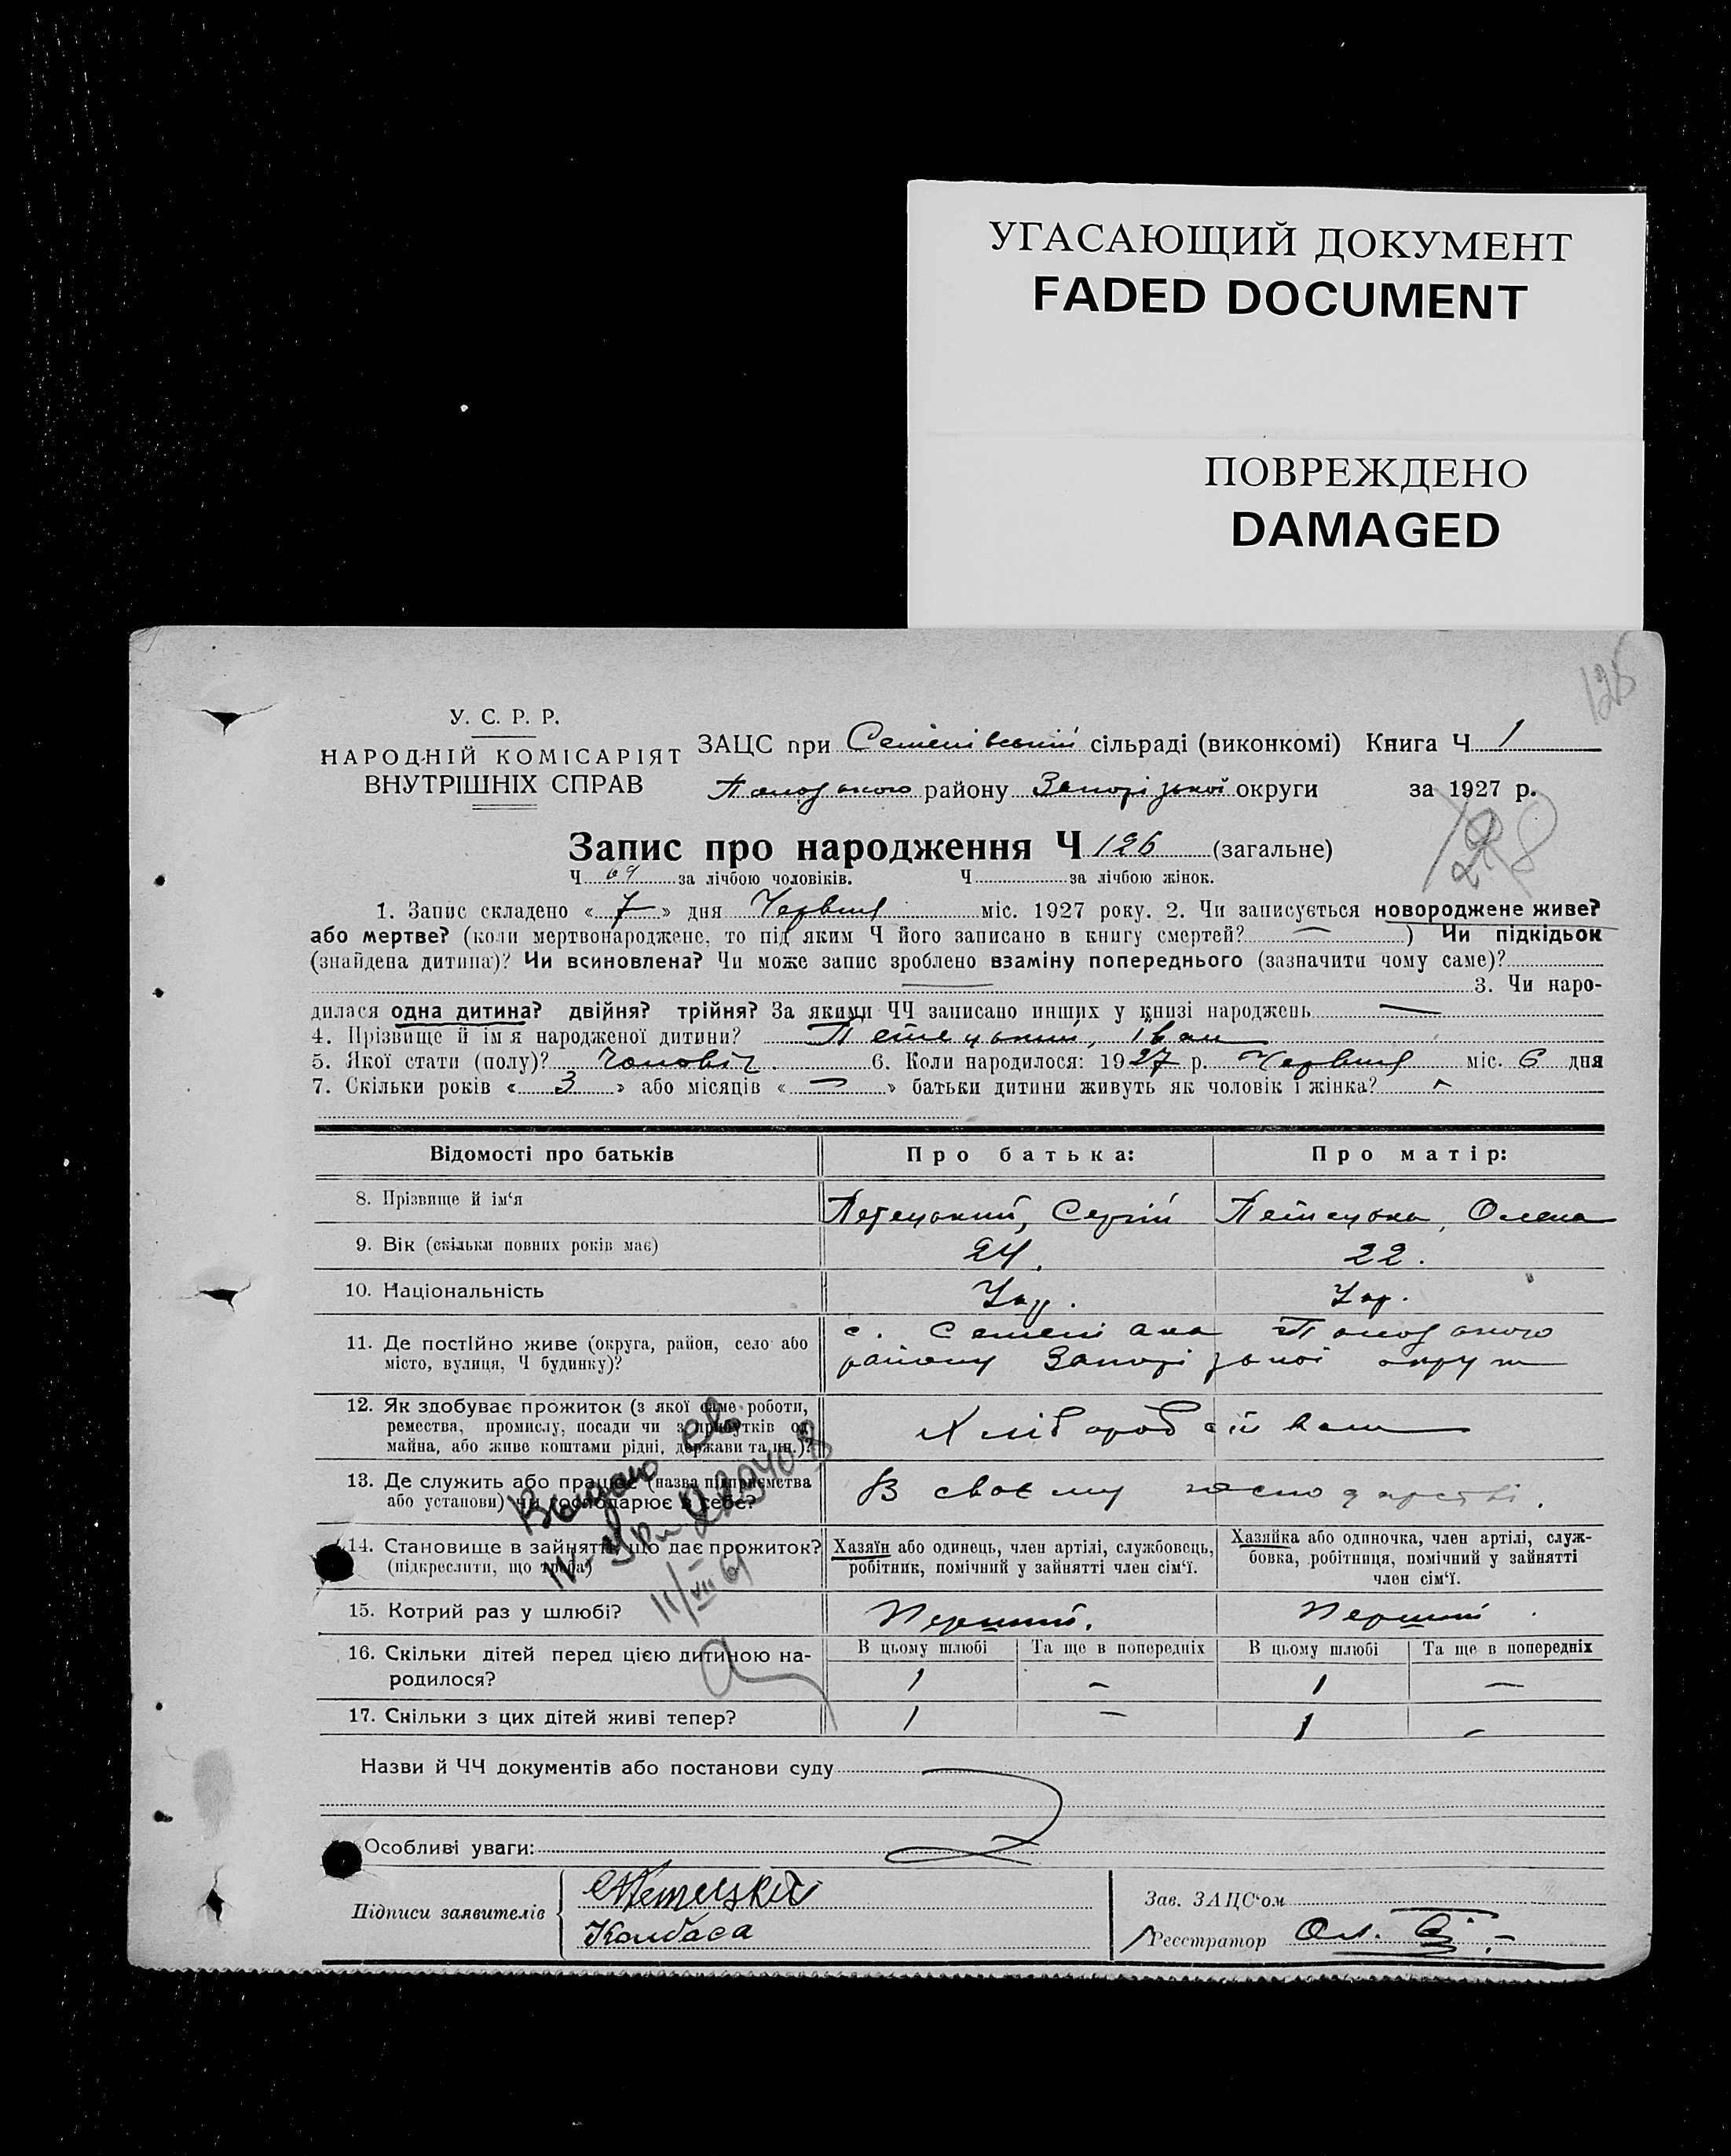 УГАСАЮЩИЙ ДОКУМЕНТ
FADED DOCUMENT
ПОВРЕЖДЕНО
DAMAGED
126
У. С. Р. Р.
НАРОДНІЙ КОМІСАРІЯТ
ВНУТРІШНІХ СПРАВ
ЗАЦС при Семенівській сільраді (виконкомі) Книга Ч 1
району Запорізької округи за 1927 р.
Запис про народження Ч 126 (загальне)
Ч 69 за лічбою чоловіків. Ч за лічбою жінок.
1. Запис складено « 7 » дня Червня міс. 1927 року. 2. Чи записується новороджене живе?
або мертве? (коли мертвонароджене, то під яким Ч його записано в книгу смертей? — ) Чи підкідьок
(знайдена дитина)? Чи всиновлена? Чи може запис зроблено взаміну попереднього (зазначити чому саме)?
— 3. Чи наро-
дилася одна дитина? двійня? трійня? За якими ЧЧ записано инших у книзі народжень —
4. Прізвище й ім'я народженої дитини? Петецький, Іван
5. Якої стати (полу)? Чоловіч. 6. Коли народилося: 1927 р. Червня міс. 6 дня
7. Скільки років « 3 » або місяців « — » батьки дитини живуть як чоловік і жінка?
Відомості про батьків Про батька: Про матір:
8. Прізвище й ім'я Петецький, Сергій Петецька, Олена
9. Вік (скільки повних років має) 24. 22.
10. Національність Укр. Укр.
11. Де постійно живе (округа, район, село або
місто, вулиця, Ч будинку)?
с. Семенівка
району Запорізької округи
12. Як здобуває прожиток (з якої саме роботи,
ремества, промислу, посади чи з прибутків од
майна, або живе коштами рідні, держави та ин.)?
13. Де служить або працює (назва підприємства
або установи) чи господарює в себе?
В своєму господарстві.
14. Становище в зайнятті, що дає прожиток?
(підкреслити, що треба)
Хазяїн або одинець, член артілі, службовець,
робітник, помічний у зайнятті член сім'ї.
Хазяйка або одиночка, член артілі, служ-
бовка, робітниця, помічний у зайнятті
член сім'ї.
15. Котрий раз у шлюбі? Перший. Перший
16. Скільки дітей перед цією дитиною на-
родилося?
В цьому шлюбі Та ще в попередніх В цьому шлюбі Та ще в попередніх
1 — 1 —
17. Скільки з цих дітей живі тепер? 1 — 1 —
Выдано
11/VII 61
Назви й ЧЧ документів або постанови суду
Особливі уваги:
Підписи заявителів
Колбаса
Зав. ЗАЦС'ом
Реєстратор